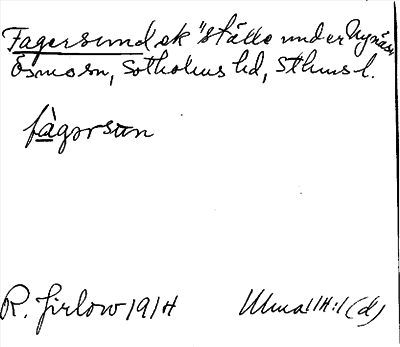 Fagersund ek "ställe under Nynäs
Ösmo sn, Sotholms hd, Sthms l.
fàgərsun
R. Jirlow 1914
Ulma 11H:1 (d)